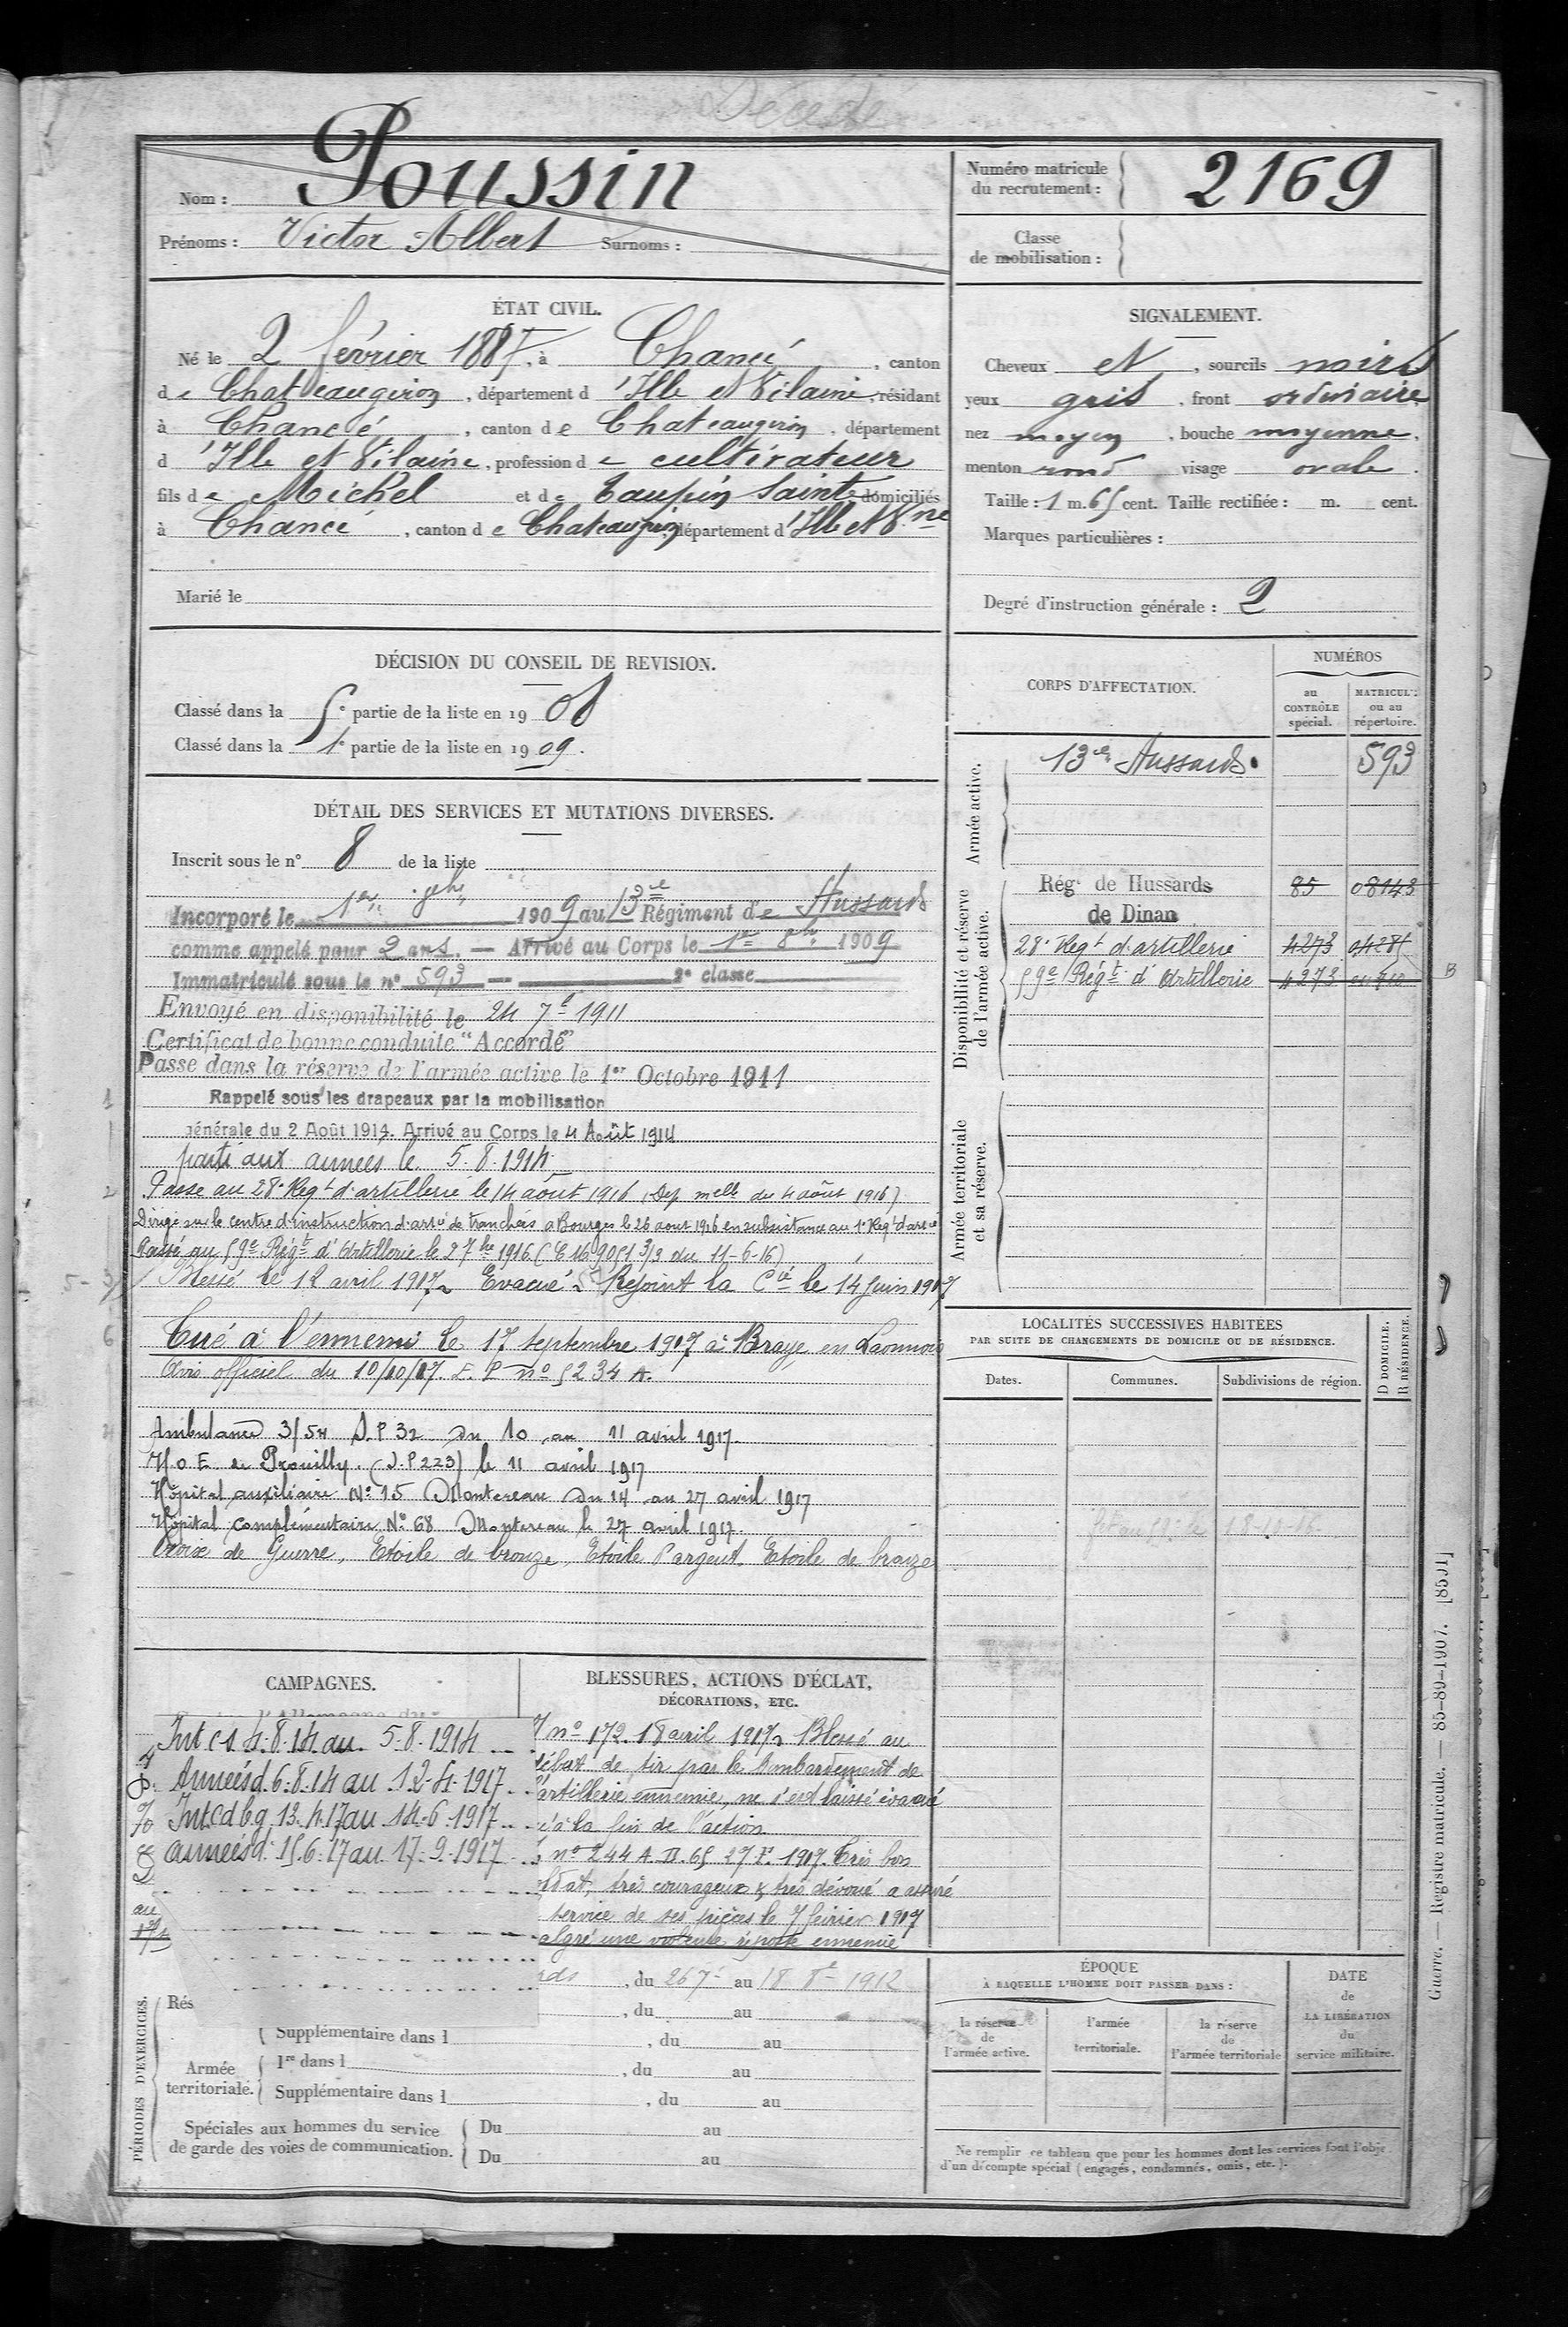 Décédé
Nom : Poussin
Prénoms : Victor Albert Surnoms :
Numéro matricule du recrutement : 2169
Classe de mobilisation :
ÉTAT CIVIL.
Né le 2 février 1887, à Chancé, canton
de Chateaugiron, département d'Ille et Vilaine, résidant
à Chancé, canton de Chateaugiron, département
d'Ille et Vilaine, profession de cultivateur
fils de Michel et de Taupin Sainte domiciliés
à Chancé, canton de Chateaugiron, département d'Ille et Vne
Marié le
SIGNALEMENT.
Cheveux et, sourcils noirs
yeux gris, front ordinaire
nez moyen, bouche moyenne,
menton rond visage ovale.
Taille : 1 m. 65 cent. Taille rectifiée : m. cent.
Marques particulières :
Degré d'instruction générale : 2
DÉCISION DU CONSEIL DE REVISION.
Classé dans la 5e partie de la liste en 1908
Classé dans la 1e partie de la liste en 1909.
DÉTAIL DES SERVICES ET MUTATIONS DIVERSES.
Inscrit sous le n° 8 de la liste
Incorporé le 1er 8bre 1909 au 13e Régiment de Hussards
comme appelé pour 2 ans. — Arrivé au Corps le 1er 8bre 1909
Immatriculé sous le n° 593 — 2e classe
Envoyé en disponibilité le 24 7b 1911
Certificat de bonne conduite "Accordé"
Passe dans la réserve de l'armée active le 1er Octobre 1911
Rappelé sous les drapeaux par la mobilisation
générale du 2 Août 1914. Arrivé au Corps le 4 Août 1914
parti aux armées le 5.8.1914
Passe au 28e Regt d'artillerie le 14 août 1916 (Dep melle du 4 août 1916)
Dirigé sur le centre d'instruction d'artie de tranchées a Bourges le 26 aout 1916 en subsistance au 1e Regt d'artie
Passé au 59e Régt d'Artillerie le 2 7bre 1916 (C 16.9051 3/3 du 11-6-16)
Blessé le 12 avril 1917. Evacué. Rejoint la Cie le 14 juin 1917
Tué à l'ennemi le 17 septembre 1917 à Braye en Laonnois
Avis officiel du 10/10/17. E. P n° 5234 A.
Ambulance 3/54 S.P 32 du 10 au 11 avril 1917.
H.o.E de Prouilly. (S.P 223) le 11 avril 1917
Hôpital auxiliaire N° 15 Montereau du 14 au 27 avril 1917
Hôpital complémentaire N° 68 Montereau le 27 avril 1917.
Croix de Guerre, Etoile de bronze, Etoile d'argent. Etoile de bronze
CORPS D'AFFECTATION.
NUMÉROS
au CONTRÔLE spécial.
MATRICULE ou au répertoire.
Armée active.
13e Hussards. 593
Disponibilité et réserve de l'armée active.
Régt de Hussards 85 08143
de Dinan
28e Regt d'artillerie 4273
59e Régt d'Artillerie 4273
B
Armée territoriale et sa réserve.
LOCALITÉS SUCCESSIVES HABITÉES
PAR SUITE DE CHANGEMENTS DE DOMICILE OU DE RÉSIDENCE.
Dates. Communes. Subdivisions de région. D DOMICILE. R RÉSIDENCE.
18-10-16
CAMPAGNES.
Int cs 4.8.14 au 5.8.1914
Armées d. 6.8.14 au 12-4-1917
Int cd bg 13.4.17 au 14-6-1917
armées d. 15.6.17 au 17.9.1917
au
BLESSURES, ACTIONS D'ÉCLAT,
DÉCORATIONS, ETC.
n° 172. 18 avril 1917. Blessé au
début de tir par le bombardement de
l'artillerie ennemie, ne s'est laissé évacué
qu'à la fin de l'action
n° 244 A. D. 65 27 1917. Très bon
soldat, très courageux & très dévoué a assuré
service de ses pièces le 7 février 1917
malgré une violente riposte ennemie
PÉRIODES D'EXERCICES.
rds, du 26 7b au 18 8b 1912
Rés , du au
Supplémentaire dans l , du au
Armée territoriale. 1re dans l , du au
Supplémentaire dans l , du au
Spéciales aux hommes du service de garde des voies de communication. Du au
Du au
ÉPOQUE
À LAQUELLE L'HOMME DOIT PASSER DANS :
la réserve de l'armée active.
l'armée territoriale.
la réserve de l'armée territoriale
DATE de LA LIBÉRATION du service militaire.
Ne remplir ce tableau que pour les hommes dont les services font l'obje
d'un décompte spécial (engagés, condamnés, omis, etc.).
Guerre. — Registre matricule. — 85-89-1907. [8591]